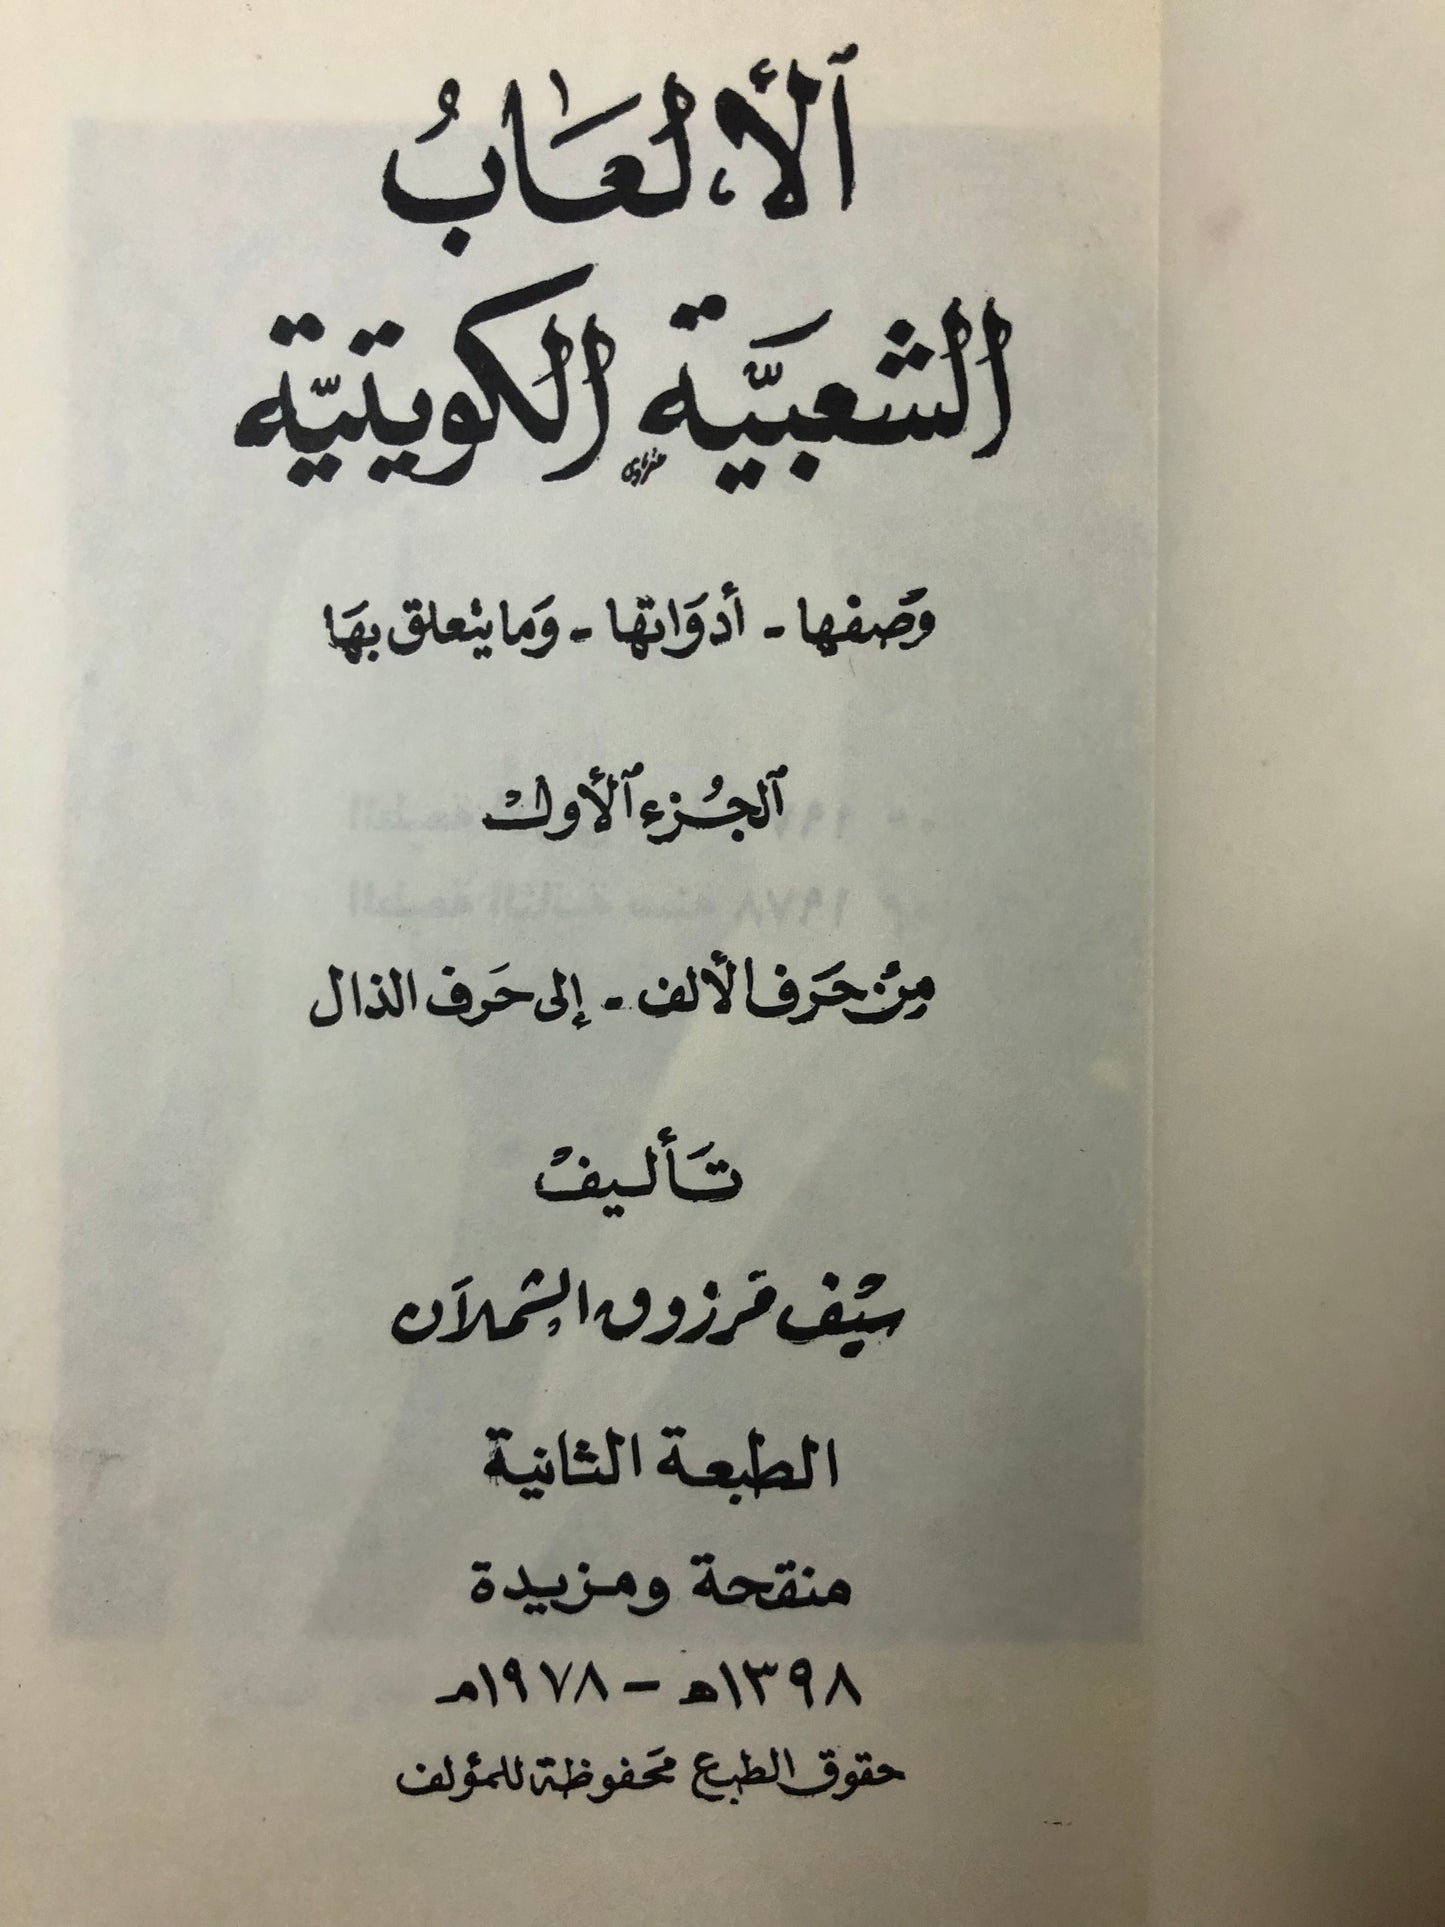 ٱلألعَابُ
الشعبيَّة الكويتيّة
وَصفها - أدوَاتها - وَما يتعلق بهَا
ٱلجُزء ٱلأول
مِنْ حَرَف الألف - إلى حَرَف الذال
تَأليفْ
سَيْف مَرزوق الشملان
الطبعة الثانية
منقحة ومزيدة
١٣٩٨هـ - ١٩٧٨م
حقوق الطبع محَفوظة للمؤلف